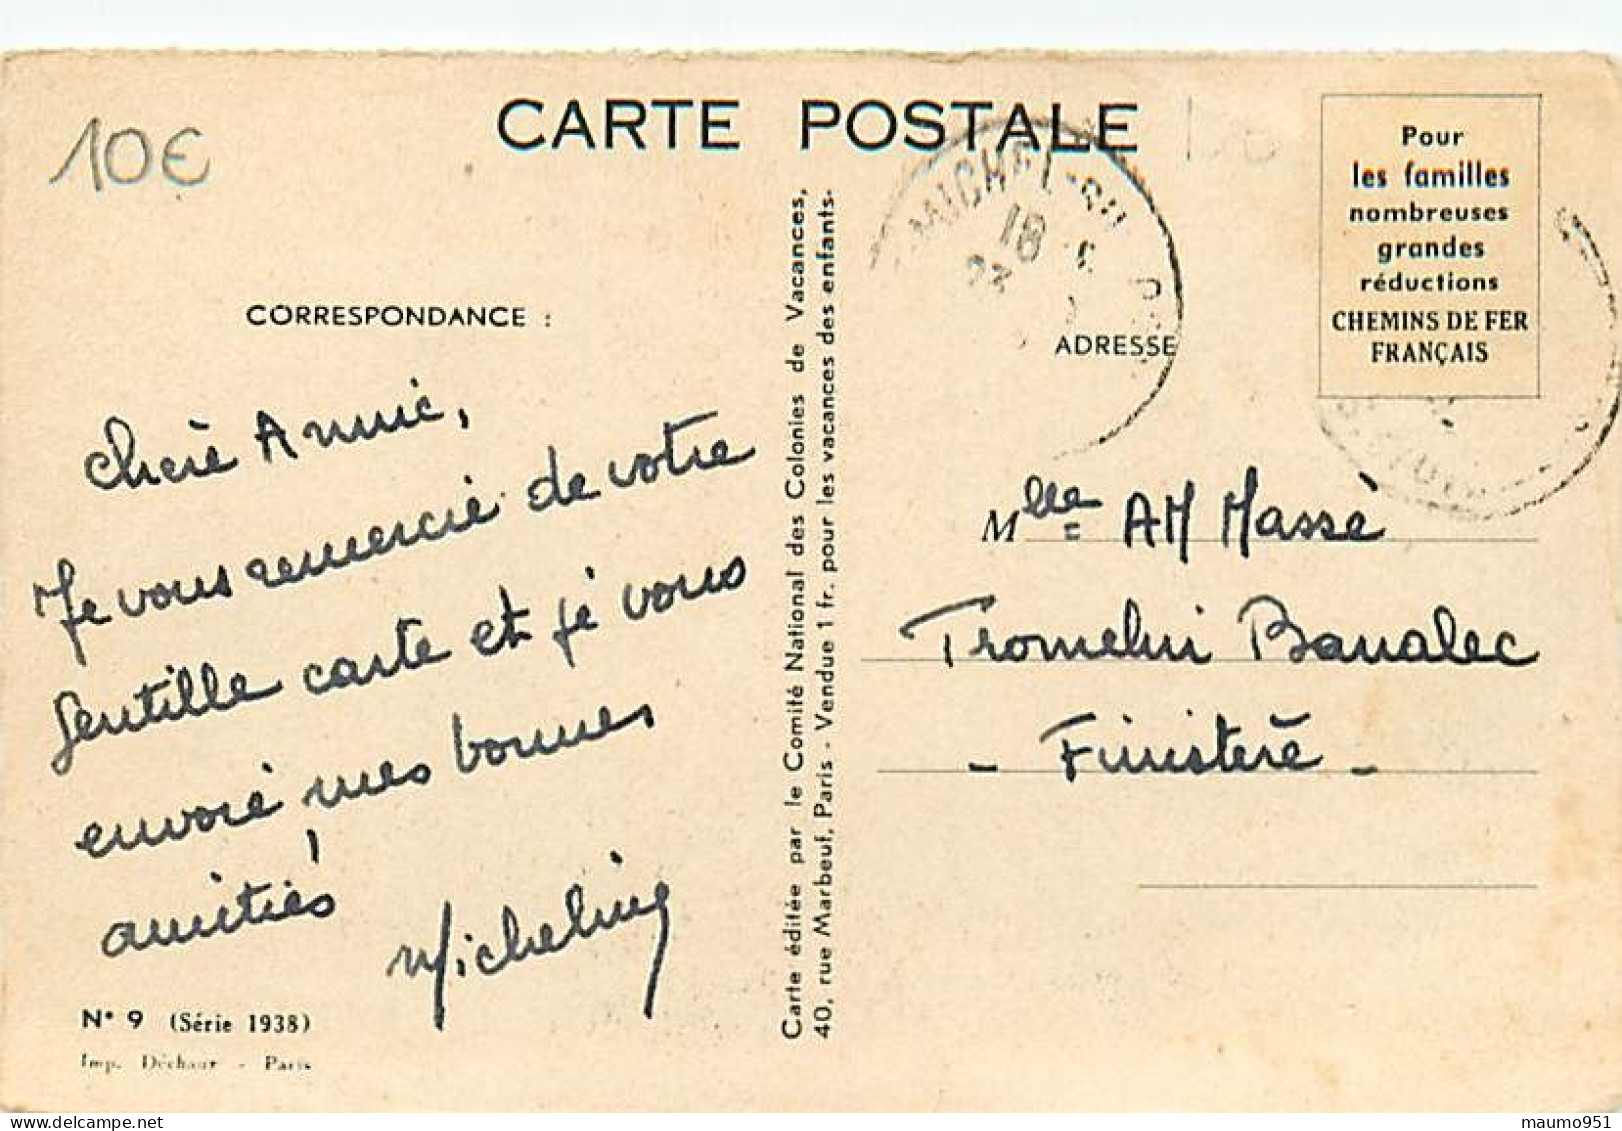 10€
CARTE POSTALE
CORRESPONDANCE :
chère Annic,
Je vous remercie de votre
gentille carte et je vous
envoie mes bonnes
amitiés
Micheline
N° 9 (Série 1938)
Imp. Déchaux - Paris
Carte éditée par le Comité National des Colonies de Vacances,
40, rue Marbeuf, Paris - Vendue 1 fr. pour les vacances des enfants-
MICHEL
18
23
ADRESSE
Pour
les familles
nombreuses
grandes
réductions
CHEMINS DE FER
FRANÇAIS
Mlle AM Massé
Tromelin Banalec
- Finistère -
maumo951